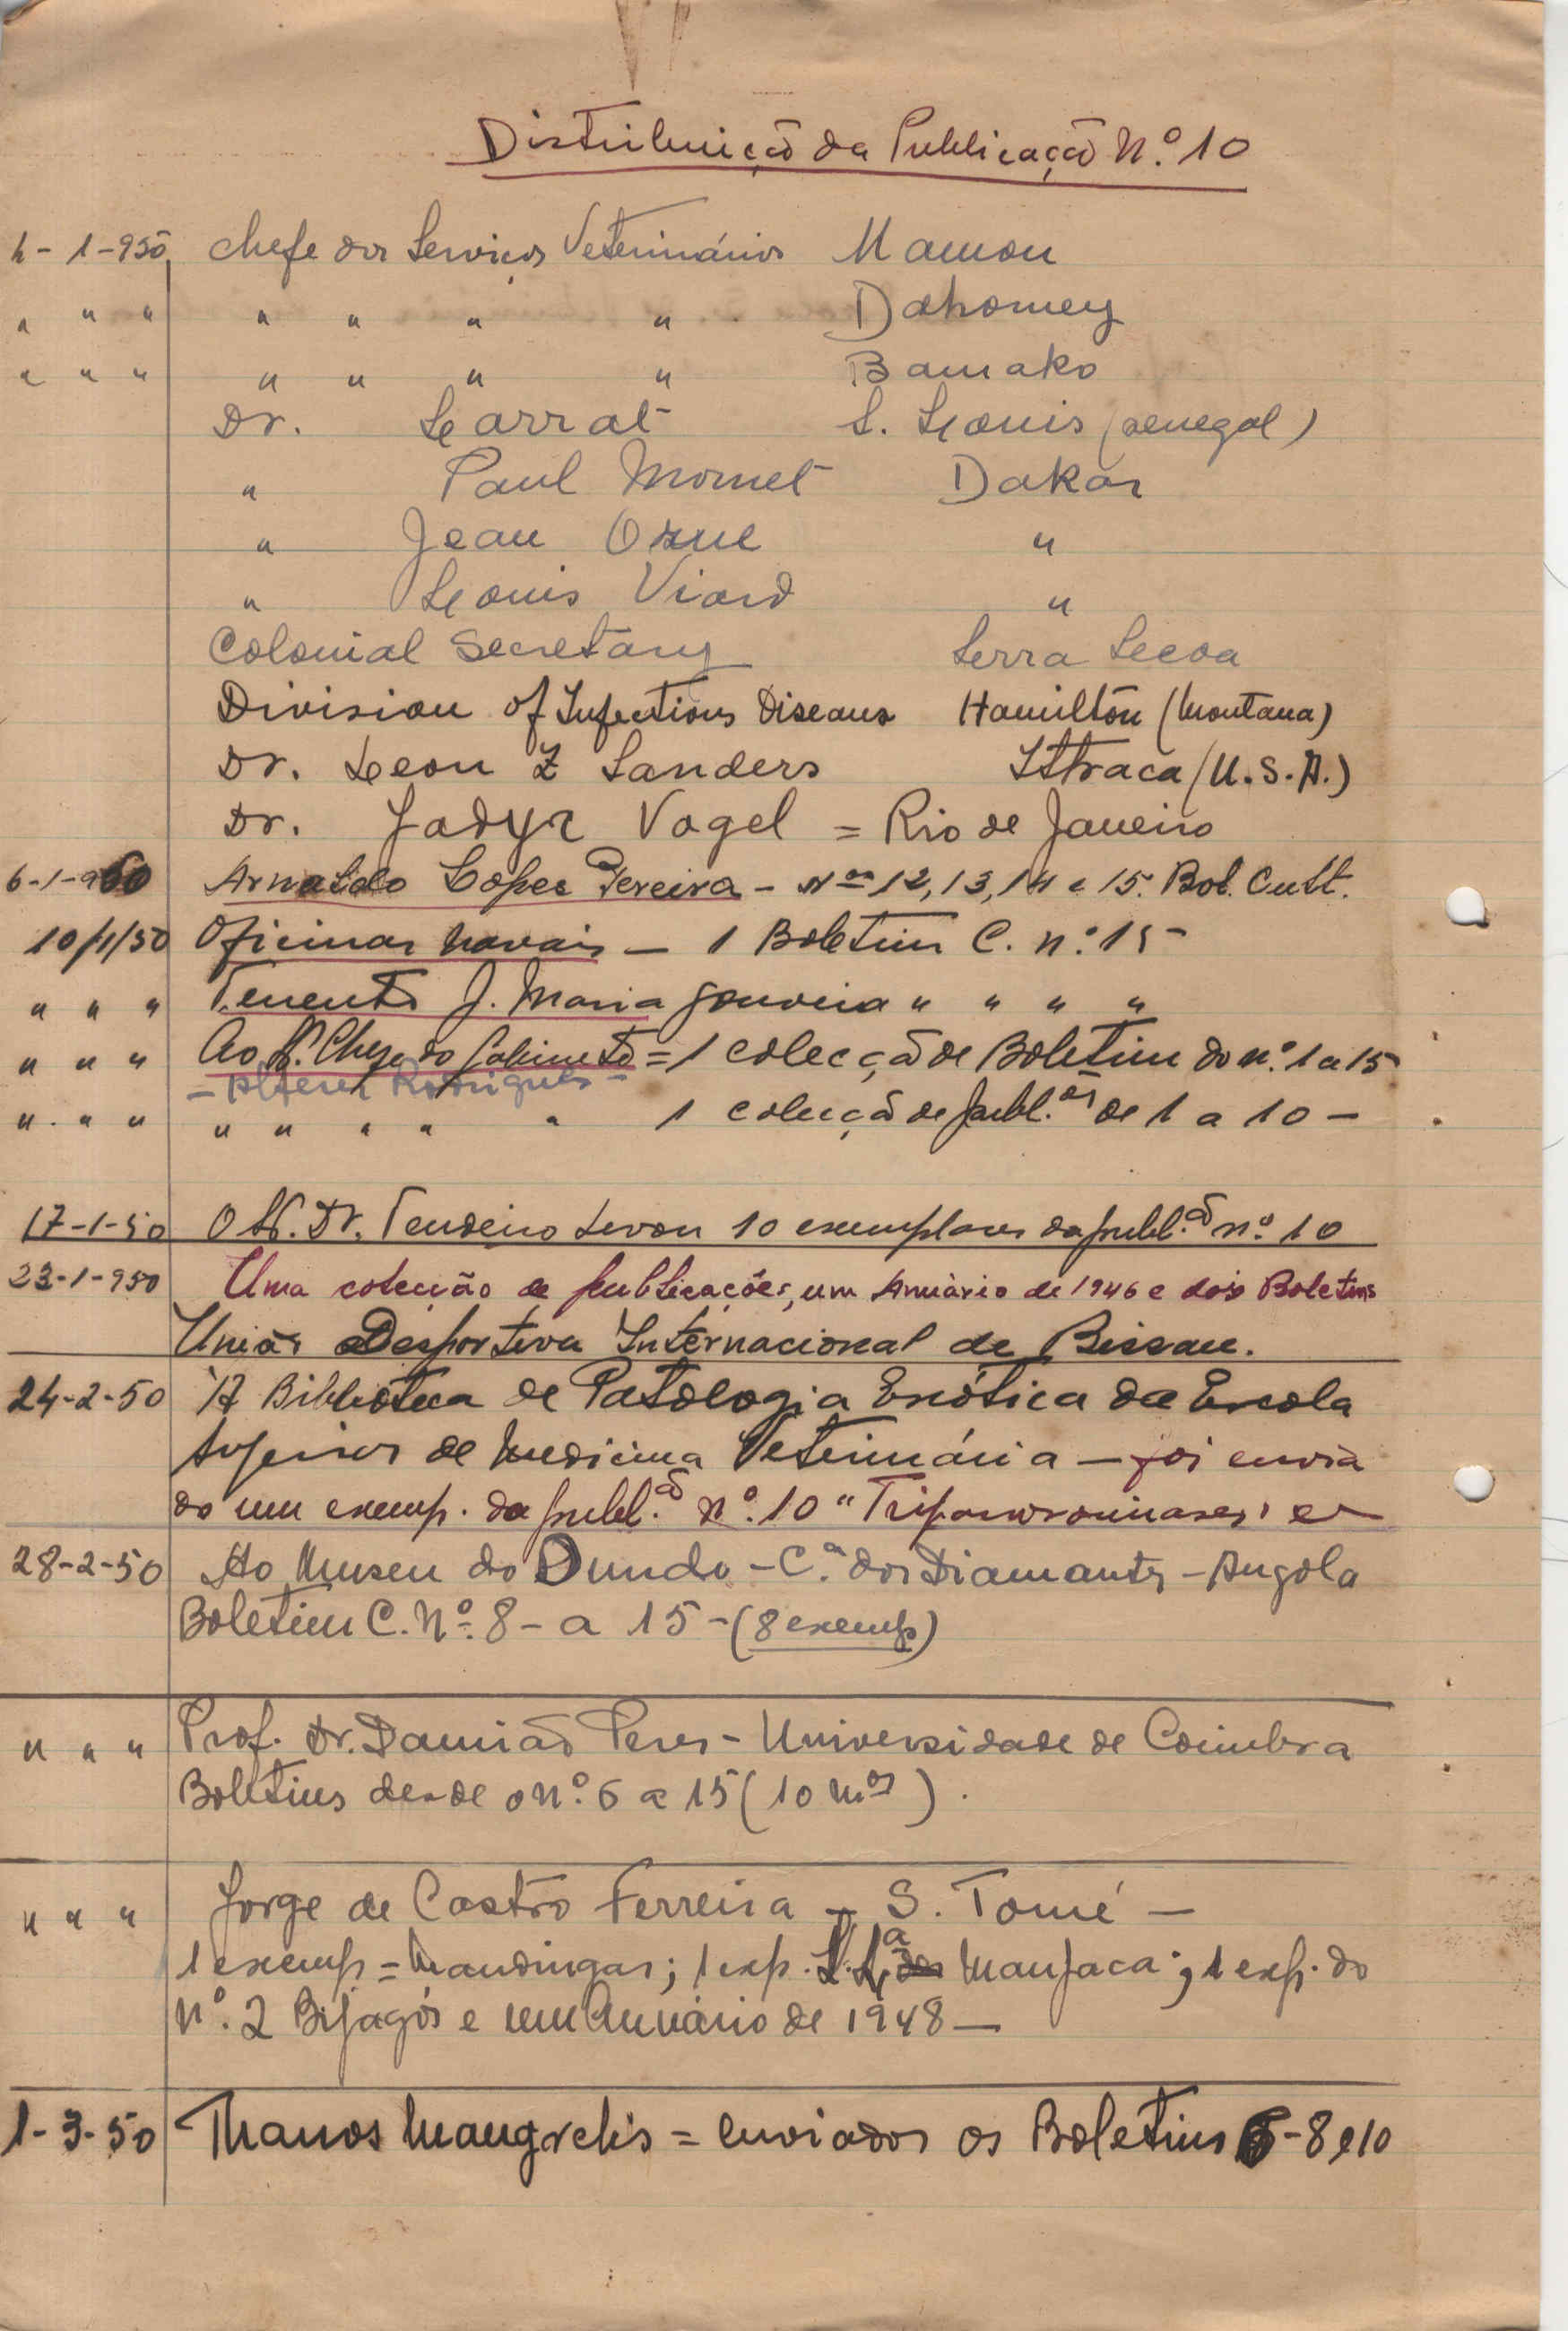 Distribuição da Publicação N.º 10
4-1-950 Chefe dos Serviços Veterinários Mamou
" " " " " " " Dahomey
" " " " " " " Bamako
Dr. Larrat S. Louis (Senegal)
" Paul Mornet Dakar
" Jean Orue "
" Louis Viard "
Colonial Secretary Serra Leoa
Division of Infectious Diseases Hamilton (Montana)
Dr. Leon Z Sanders Ithaca (U.S.A.)
Dr. Jadyr Vogel = Rio de Janeiro
6-1-950 Arnaldo Lopes Pereira - Nos 12, 13, 14 e 15. Bol. Cult.
10/1/50 Oficinas Navais - 1 Boletim C. n.º 15
" " " Tenente J. Maria Gouveia " " " "
" " " Ao Sr. Chefe do Gabinete = 1 colecção de Boletim do n.º 1 a 15
- Alferes Rodrigues -
" " " " " " " " 1 colecção de publ.ões de 1 a 10 -
17-1-50 O Sr. Dr. Tendeiro levou 10 exemplares da publ.ão n.º 10
23-1-950 Uma colecção de publicações, um Anuário de 1946 e dois Boletins
União Desportiva Internacional de Bissau.
24-2-50 'A Biblioteca de Patologia Exótica da Escola
Superior de Medicina Veterinária - foi envia
do um exemp. da publ.ão N.º 10 "Tripanosomiases"
28-2-50 Ao Museu do Dundo - C.ª dos Diamantes - Angola
Boletim C. N.º 8 - a 15 - (8 exemp)
" " " Prof. Dr. Damião Peres - Universidade de Coimbra
Boletins desde o N.º 6 a 15 (10 n.os).
" " " Jorge de Castro Ferreira - S. Tomé -
1 exemp = Mandingas; 1 exp. Manjaca; 1 exp. do
N.º 2 Bijagós e um Anuário de 1948 -
1-3-50 Thanos Maugrelis = enviados os Boletins 6 - 8 e 10